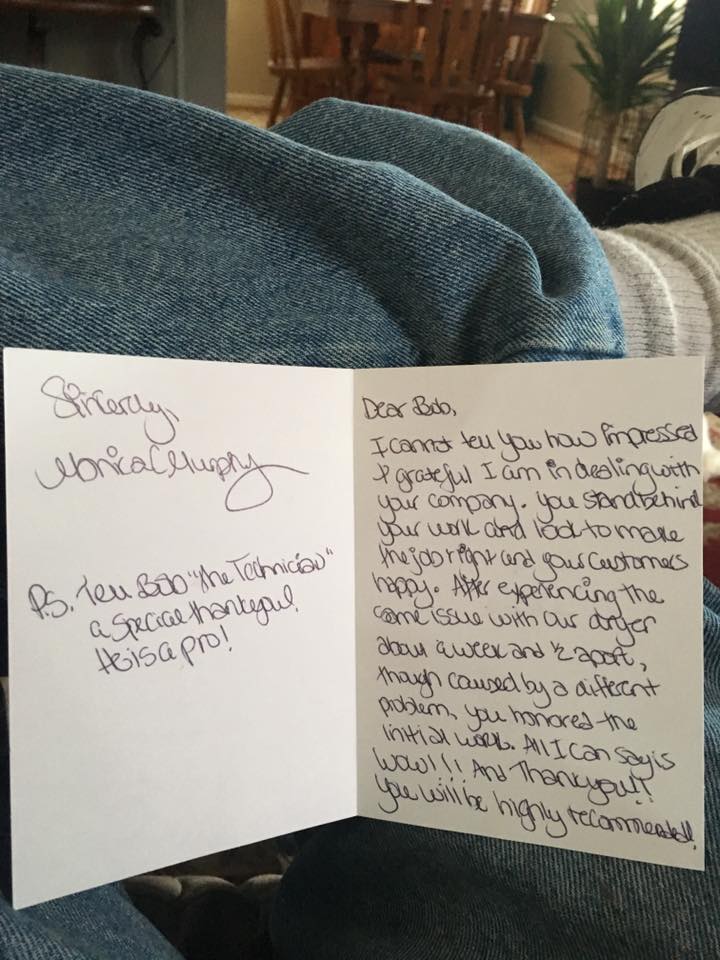 Dear Bob,
I cannot tell you how impressed
& grateful I am in dealing with
your company. You stand behind
your work and look to make
the job right and your customers
happy. After experiencing the
same issue with our dryer
about a week and ½ apart,
though caused by a different
problem, you honored the
initial work. All I can say is
Wow!!! And Thank you!!
You will be highly recommended!
Sincerely,
Monica Murphy
P.S. Tell Bob "The Technician"
a special thank you!
He is a pro!